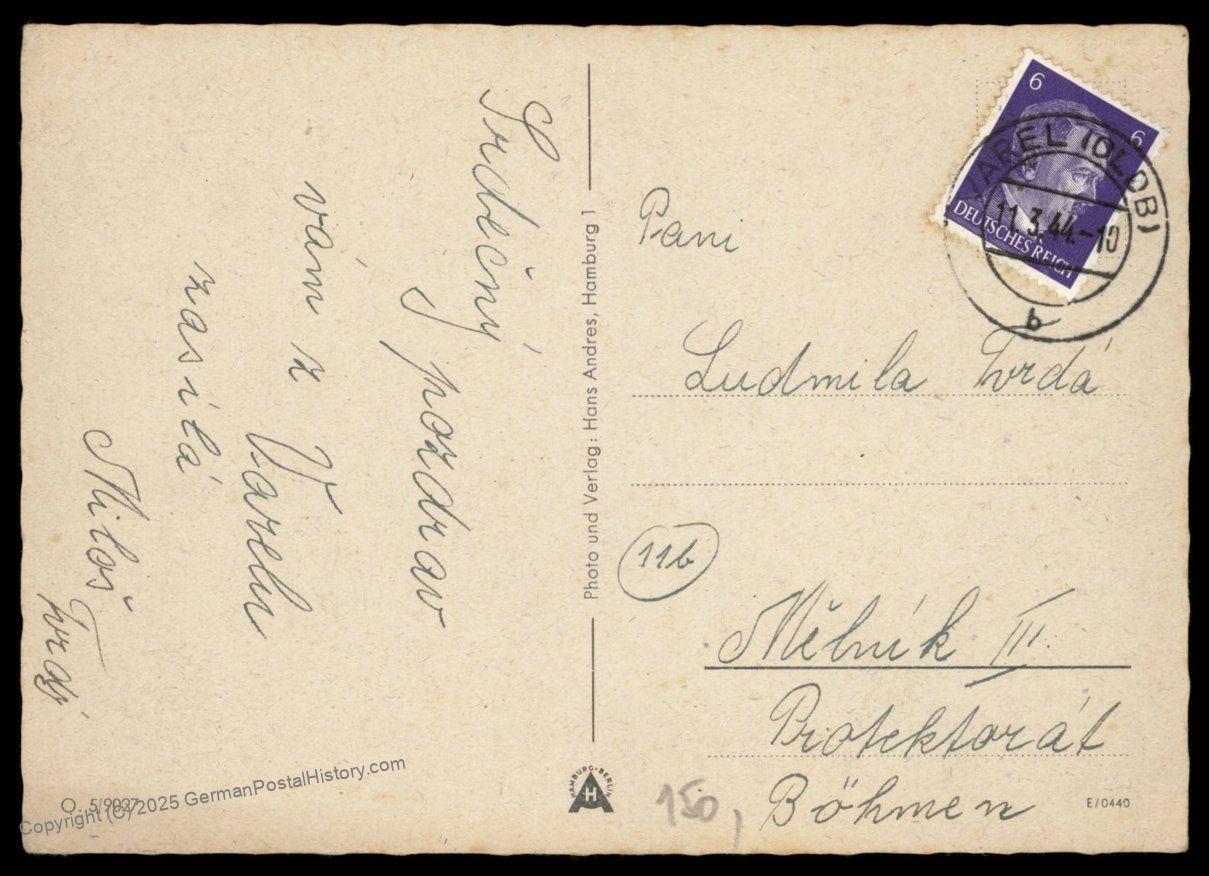 Srdečný
pozdrav
vám z Varelu
zasílá
Miloš
Tvrdý
Photo und Verlag: Hans Andres, Hamburg 1
6
6
DEUTSCHES REICH
VAREL (OLDB)
11.3.44.-10
b
Paní
Ludmila Tvrdá
11b
Mělník III.
Protektorát
Böhmen
HAMBURG-BERLIN
H
150,
E/0440
O. 5/9027
Copyright (C) 2025 GermanPostalHistory.com